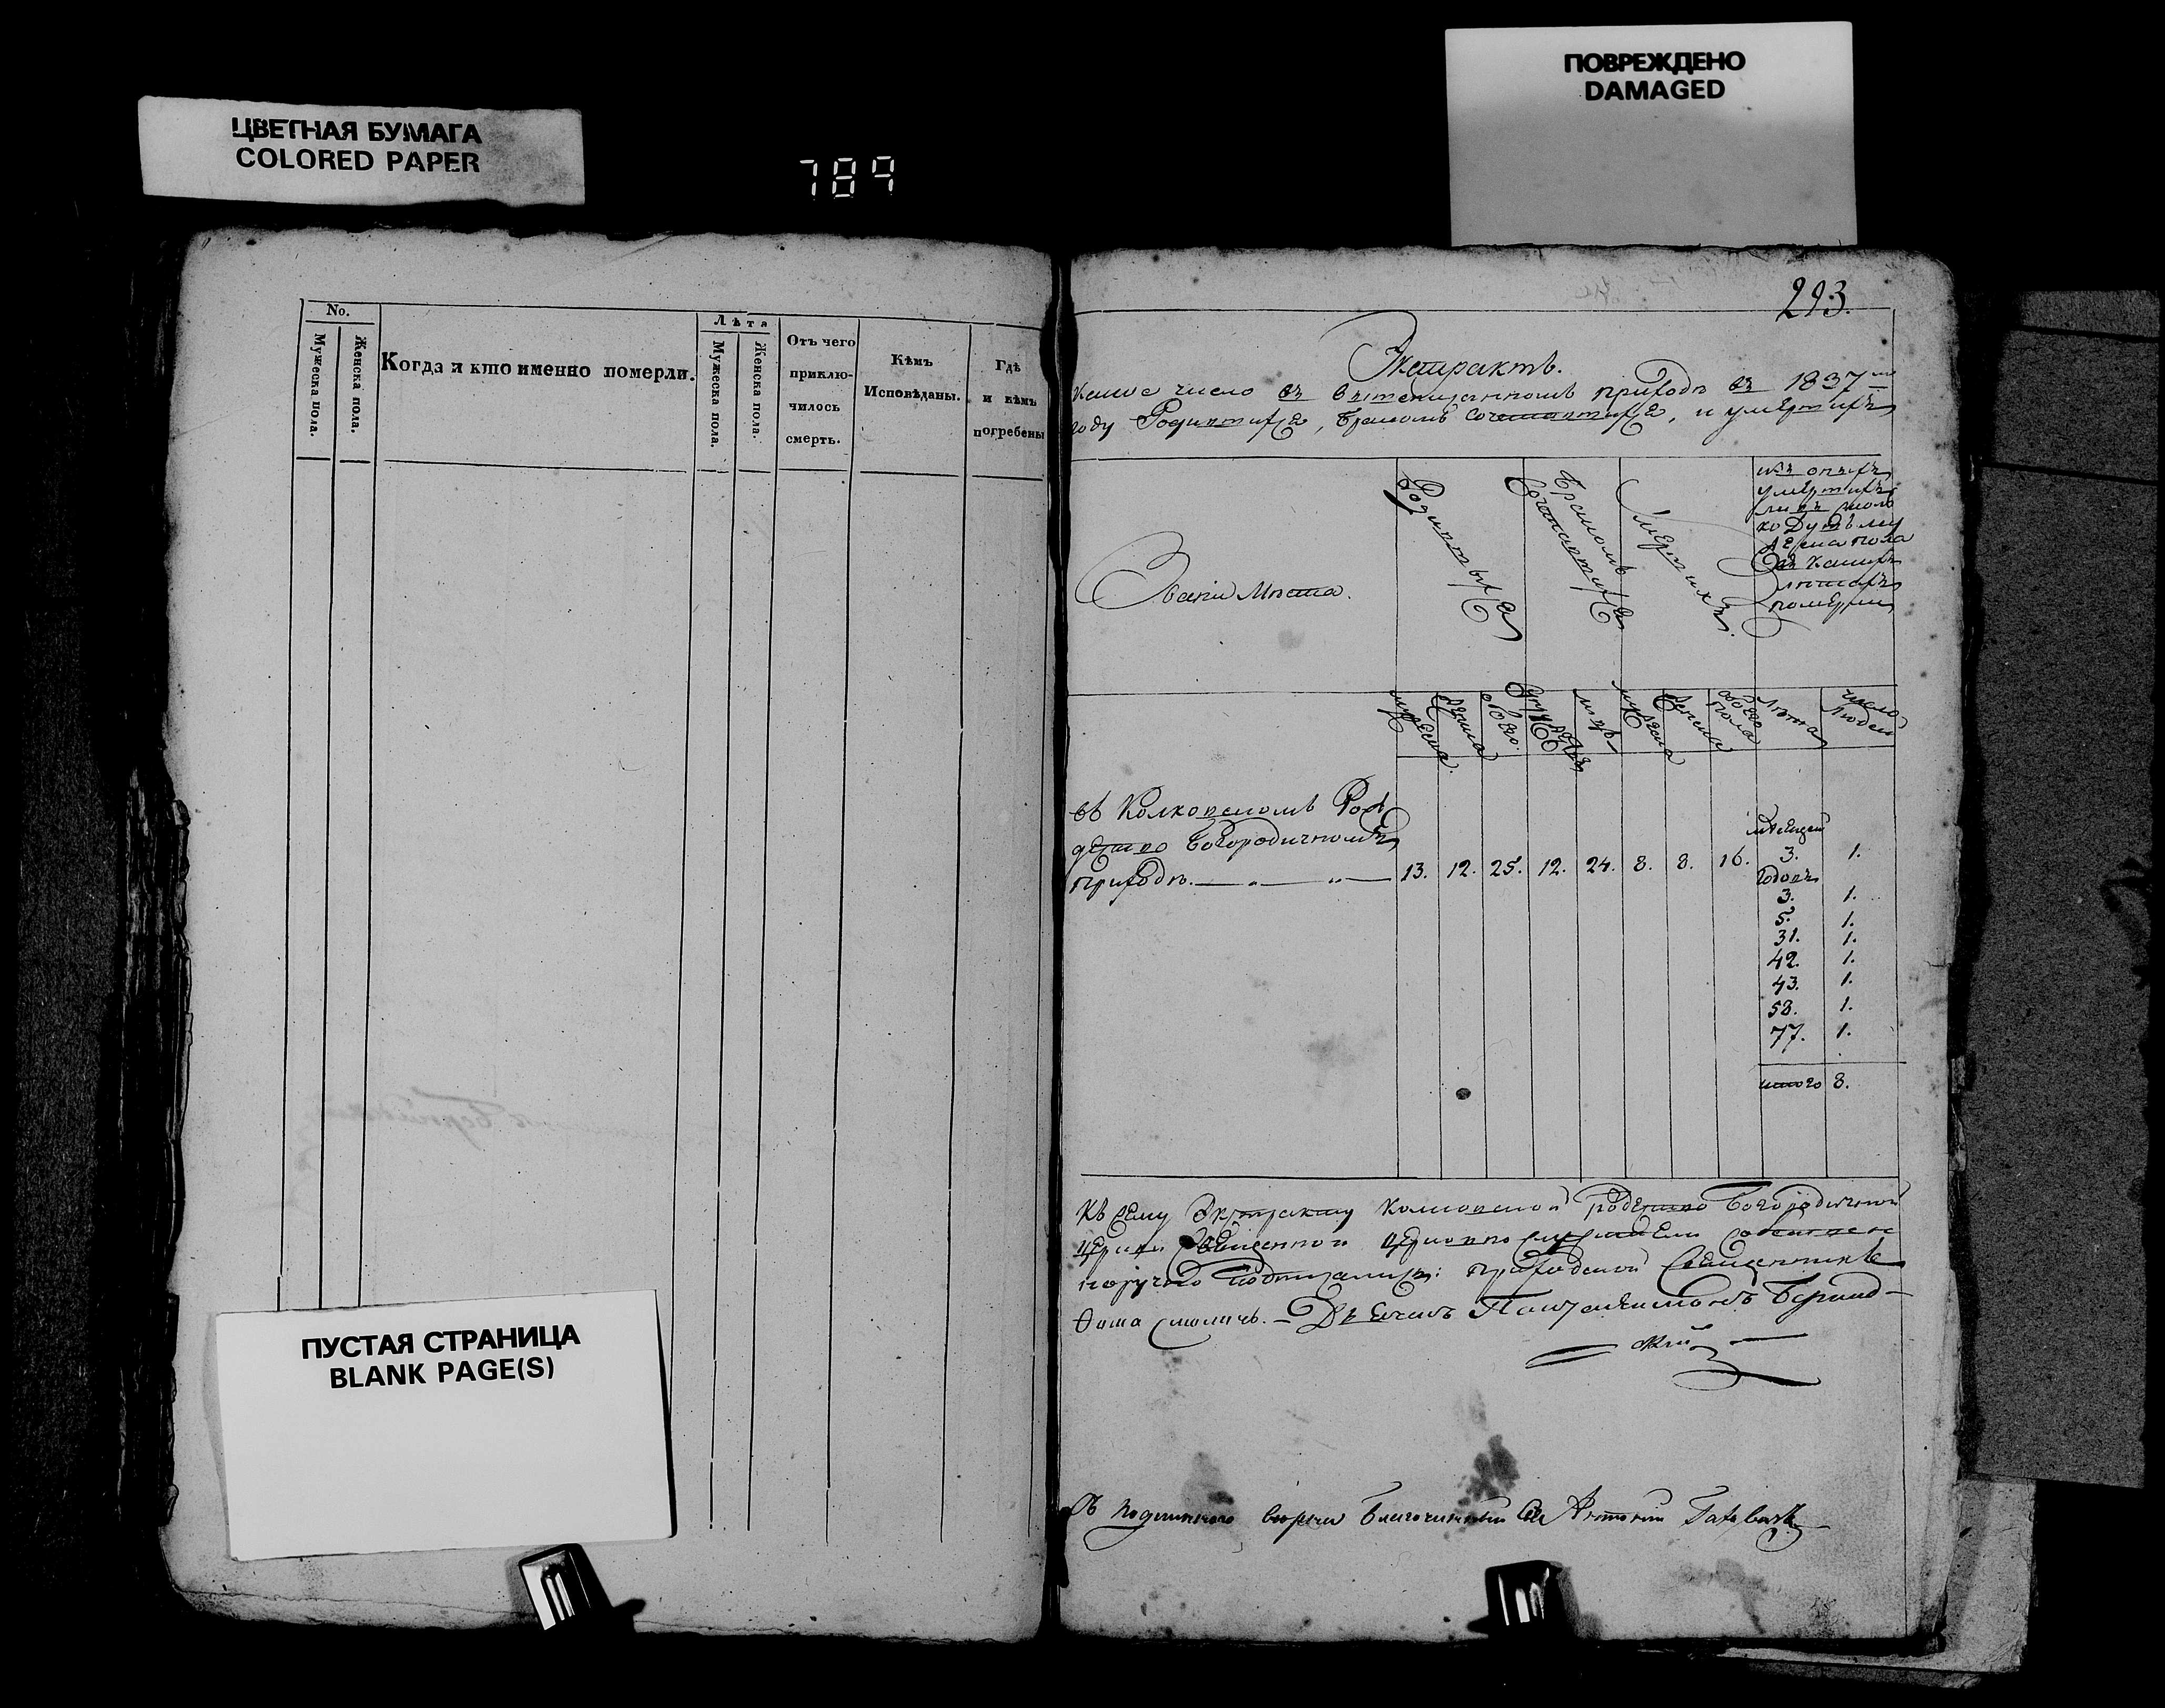 ЦВЕТНАЯ БУМАГА
COLORED PAPER
789
ПОВРЕЖДЕНО
DAMAGED
No.
Мужеска пола.
Женска пола.
Когда и кто именно померли.
Лѣта
Мужеска пола.
Женска пола.
Отъ чего
приклю-
чилось
смерть.
Кѣмъ
Исповѣданы.
Гдѣ
и кѣмъ
погребены
ПУСТАЯ СТРАНИЦА
BLANK PAGE(S)
293.
Экстрактъ.
число въ приходѣ въ 1837 мъ
году Родившихся, бракомъ сочетавшихся, и умершихъ
Званіи Мѣста.
Родившихся
Бракомъ
Сочетавшихся
Умершихъ.
изъ онихъ
умершихъ
ко Душъ му
жеска пола
въ какихъ
лѣтахъ
померли
мужеска.
женска
обоего.
мужеска
женска
обоего
пола
лѣта
число
людей
въ Колковскомъ Рож
дество Богородичномъ
приходѣ. 13. 12. 25. 12. 24. 8. 8. 16.
мѣсяцей
3. 1.
годовъ
3. 1.
5. 1.
31. 1.
42. 1.
43. 1.
58. 1.
77. 1.
итого 8.
Къ сему Экстракту Колковской Рождество Богородичной
церкви священно и церковно служители собствен
норучно подписались: приходской Священникъ
Фома Дьячокъ
Съ подлиннымъ вѣрно Благочинный Антоній